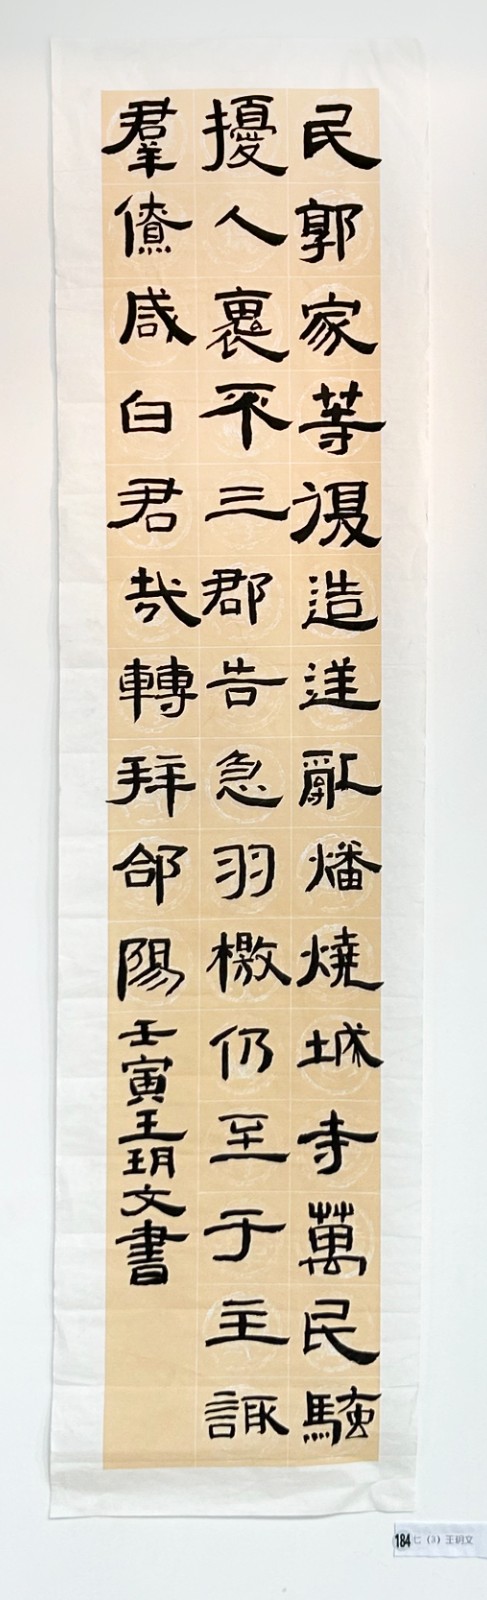 民郭家等復造逆亂燔燒城寺萬民騷
擾人裹不三郡告急羽檄仍至于主諏
羣僚咸曰君哉轉拜郃陽
壬寅王玥文書
184 七（3）王玥文